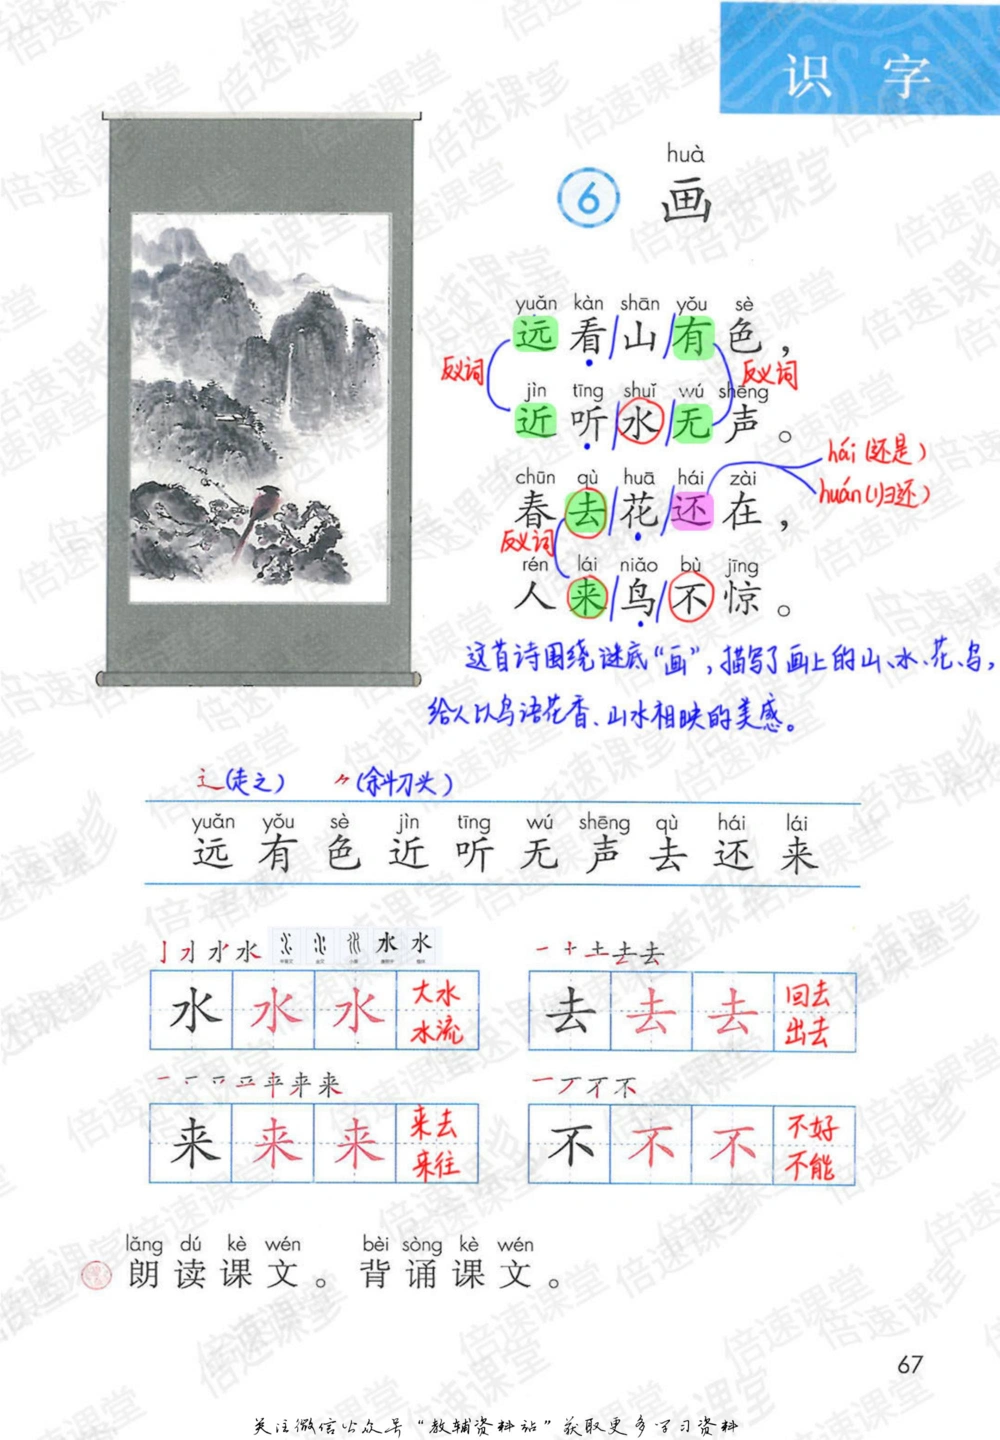 识字
huà
6 画
yuǎn kàn shān yǒu sè
远看山有色，
反义词 反义词
jìn tīng shuǐ wú shēng
近听水无声。
hái(还是)
chūn qù huā hái zài
huán(归还)
春去花还在，
反义词
rén lái niǎo bù jīng
人来鸟不惊。
这首诗围绕谜底“画”，描写了画上的山、水、花、鸟，
给人以鸟语花香、山水相映的美感。
辶(走之) 〃(斜刀头)
yuǎn yǒu sè jìn tīng wú shēng qù hái lái
远 有 色 近 听 无 声 去 还 来
水 水 水 大水 水流
去 去 去 回去 出去
来 来 来 来去 来往
不 不 不 不好 不能
lǎng dú kè wén bèi sòng kè wén
朗读课文。背诵课文。
67
关注微信公众号“教辅资料站”获取更多学习资料
倍速课堂